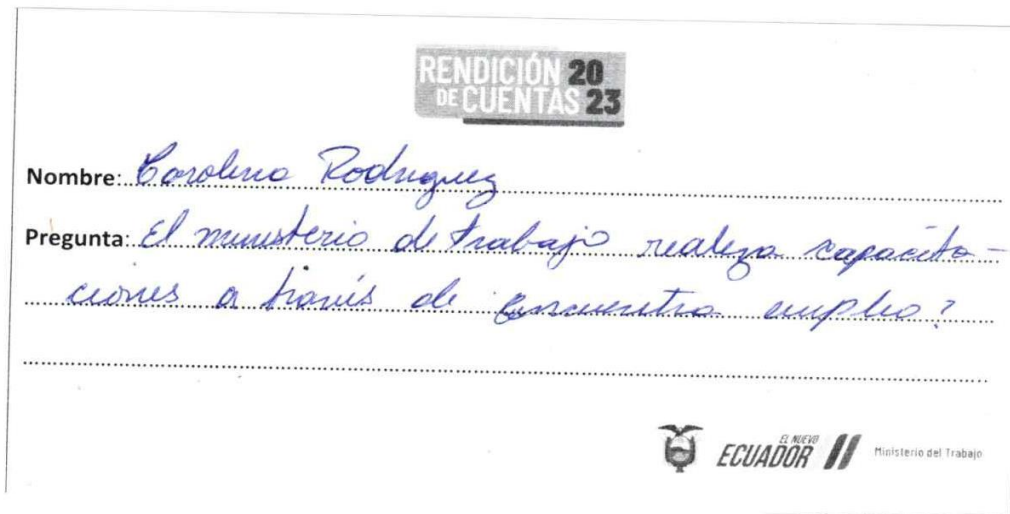 RENDICIÓN 20
DE CUENTAS 23
Nombre: Carolina Rodriguez
Pregunta: El ministerio de trabajo realiza capacita-
ciones a través de Encuentra empleo?
EL NUEVO
ECUADOR
Ministerio del Trabajo